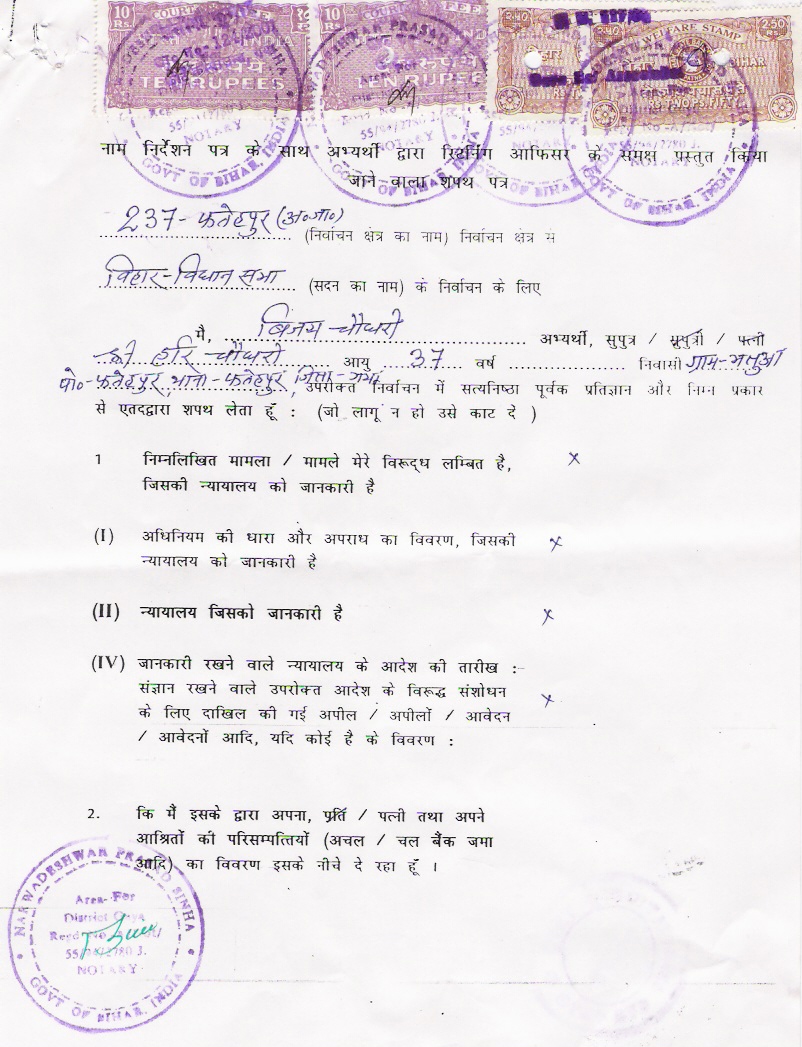 10 Rs.
COURT FEE
INDIA
TEN RUPEES
10 Rs.
FEE
TEN RUPEES
2.50 RS
WELFARE STAMP
BIHAR
RS TWO PS. FIFTY
NOTARY
GOVT OF BIHAR, INDIA
नाम निर्देशन पत्र के साथ अभ्यर्थी द्वारा रिटर्निंग आफिसर के समक्ष प्रस्तुत किया
जाने वाला शपथ पत्र
237-फतेहपुर (अ०जा०) (निर्वाचन क्षेत्र का नाम) निर्वाचन क्षेत्र से
विहार-विधान सभा (सदन का नाम) के निर्वाचन के लिए
मै, विजय चौधरी अभ्यर्थी, सुपुत्र / सुपुत्री / पत्नी
श्री हरि चौधरी आयु 37 वर्ष निवासी ग्राम-
पो०-फतेहपुर, थाना-फतेहपुर, जिला-गया, उपरोक्त निर्वाचन में सत्यनिष्ठा पूर्वक प्रतिज्ञान और निम्न प्रकार
से एतदद्वारा शपथ लेता हूँ : (जो लागू न हो उसे काट दे )
1 निम्नलिखित मामला / मामले मेरे विरूद्ध लम्बित है, x
जिसकी न्यायालय को जानकारी है
(I) अधिनियम की धारा और अपराध का विवरण, जिसकी x
न्यायालय को जानकारी है
(II) न्यायालय जिसको जानकारी है x
(IV) जानकारी रखने वाले न्यायालय के आदेश की तारीख :-
संज्ञान रखने वाले उपरोक्त आदेश के विरूद्ध संशोधन x
के लिए दाखिल की गई अपील / अपीलों / आवेदन
/ आवेदनों आदि, यदि कोई है के विवरण :
2. कि मैं इसके द्वारा अपना, प्रति / पत्नी तथा अपने
आश्रितों की परिसम्पत्तियों (अचल / चल बैंक जमा
आदि) का विवरण इसके नीचे दे रहा हूँ ।
NARWADESHWAR PRASAD SINHA
Area- For
District Gaya
NOTARY
GOVT OF BIHAR, INDIA